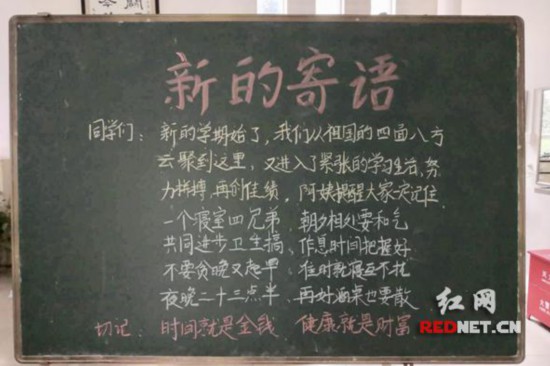 新的寄语
同学们：新的学期始了，我们从祖国的四面八方
云聚到这里，又进入了紧张的学习生活，努
力拼搏，再创佳绩，阿姨提醒大家一定记住
一个寝室四兄弟 朝夕相处要和气
共同进步卫生搞 作息时间把握好
不要贪晚又起早 准时就寝互不扰
夜晚二十三点半 再好酒桌也要散
切记：时间就是金钱 健康就是财富
红网
REDNET.CN